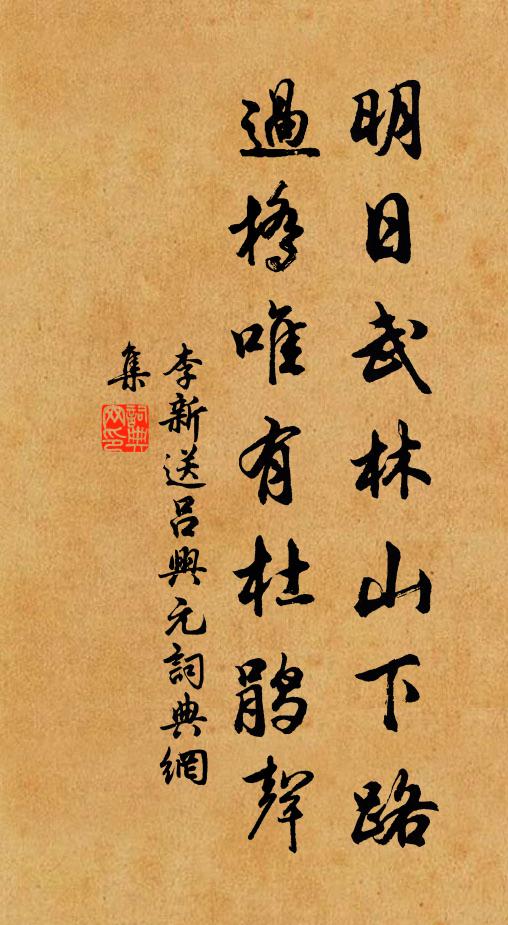 明日武林山下路
過橋唯有杜鵑聲
李新送呂興元詞典網
集
詞典
网印